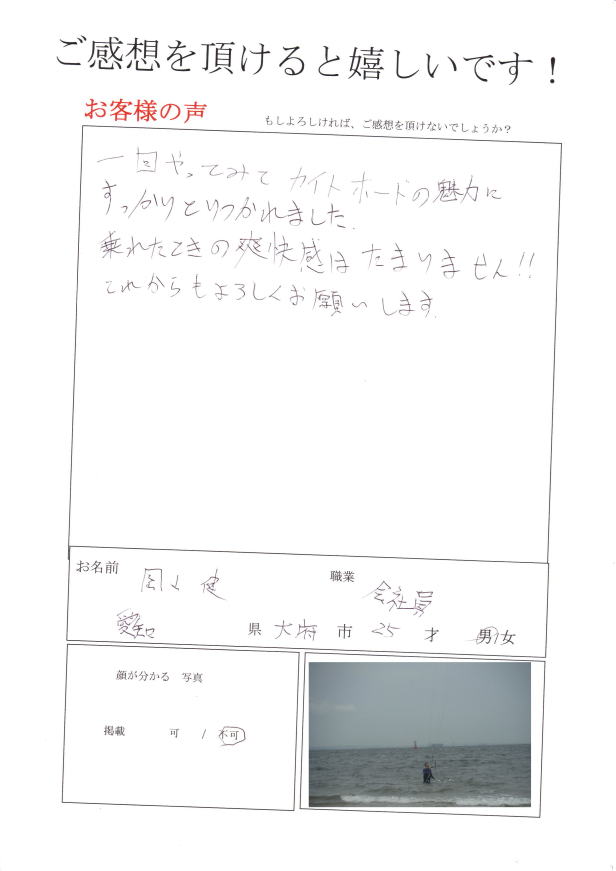 ご感想を頂けると嬉しいです！
お客様の声
もしよろしければ、ご感想を頂けないでしょうか？
一回やってみてカイトボードの魅力に
すっかりとりつかれました.
乗れたときの爽快感はたまりません!!
これからもよろしくお願いします.
お名前 健 職業 会社員
愛知 県 大府 市 25 才 男/女
顔が分かる 写真
掲載 可 / 不可